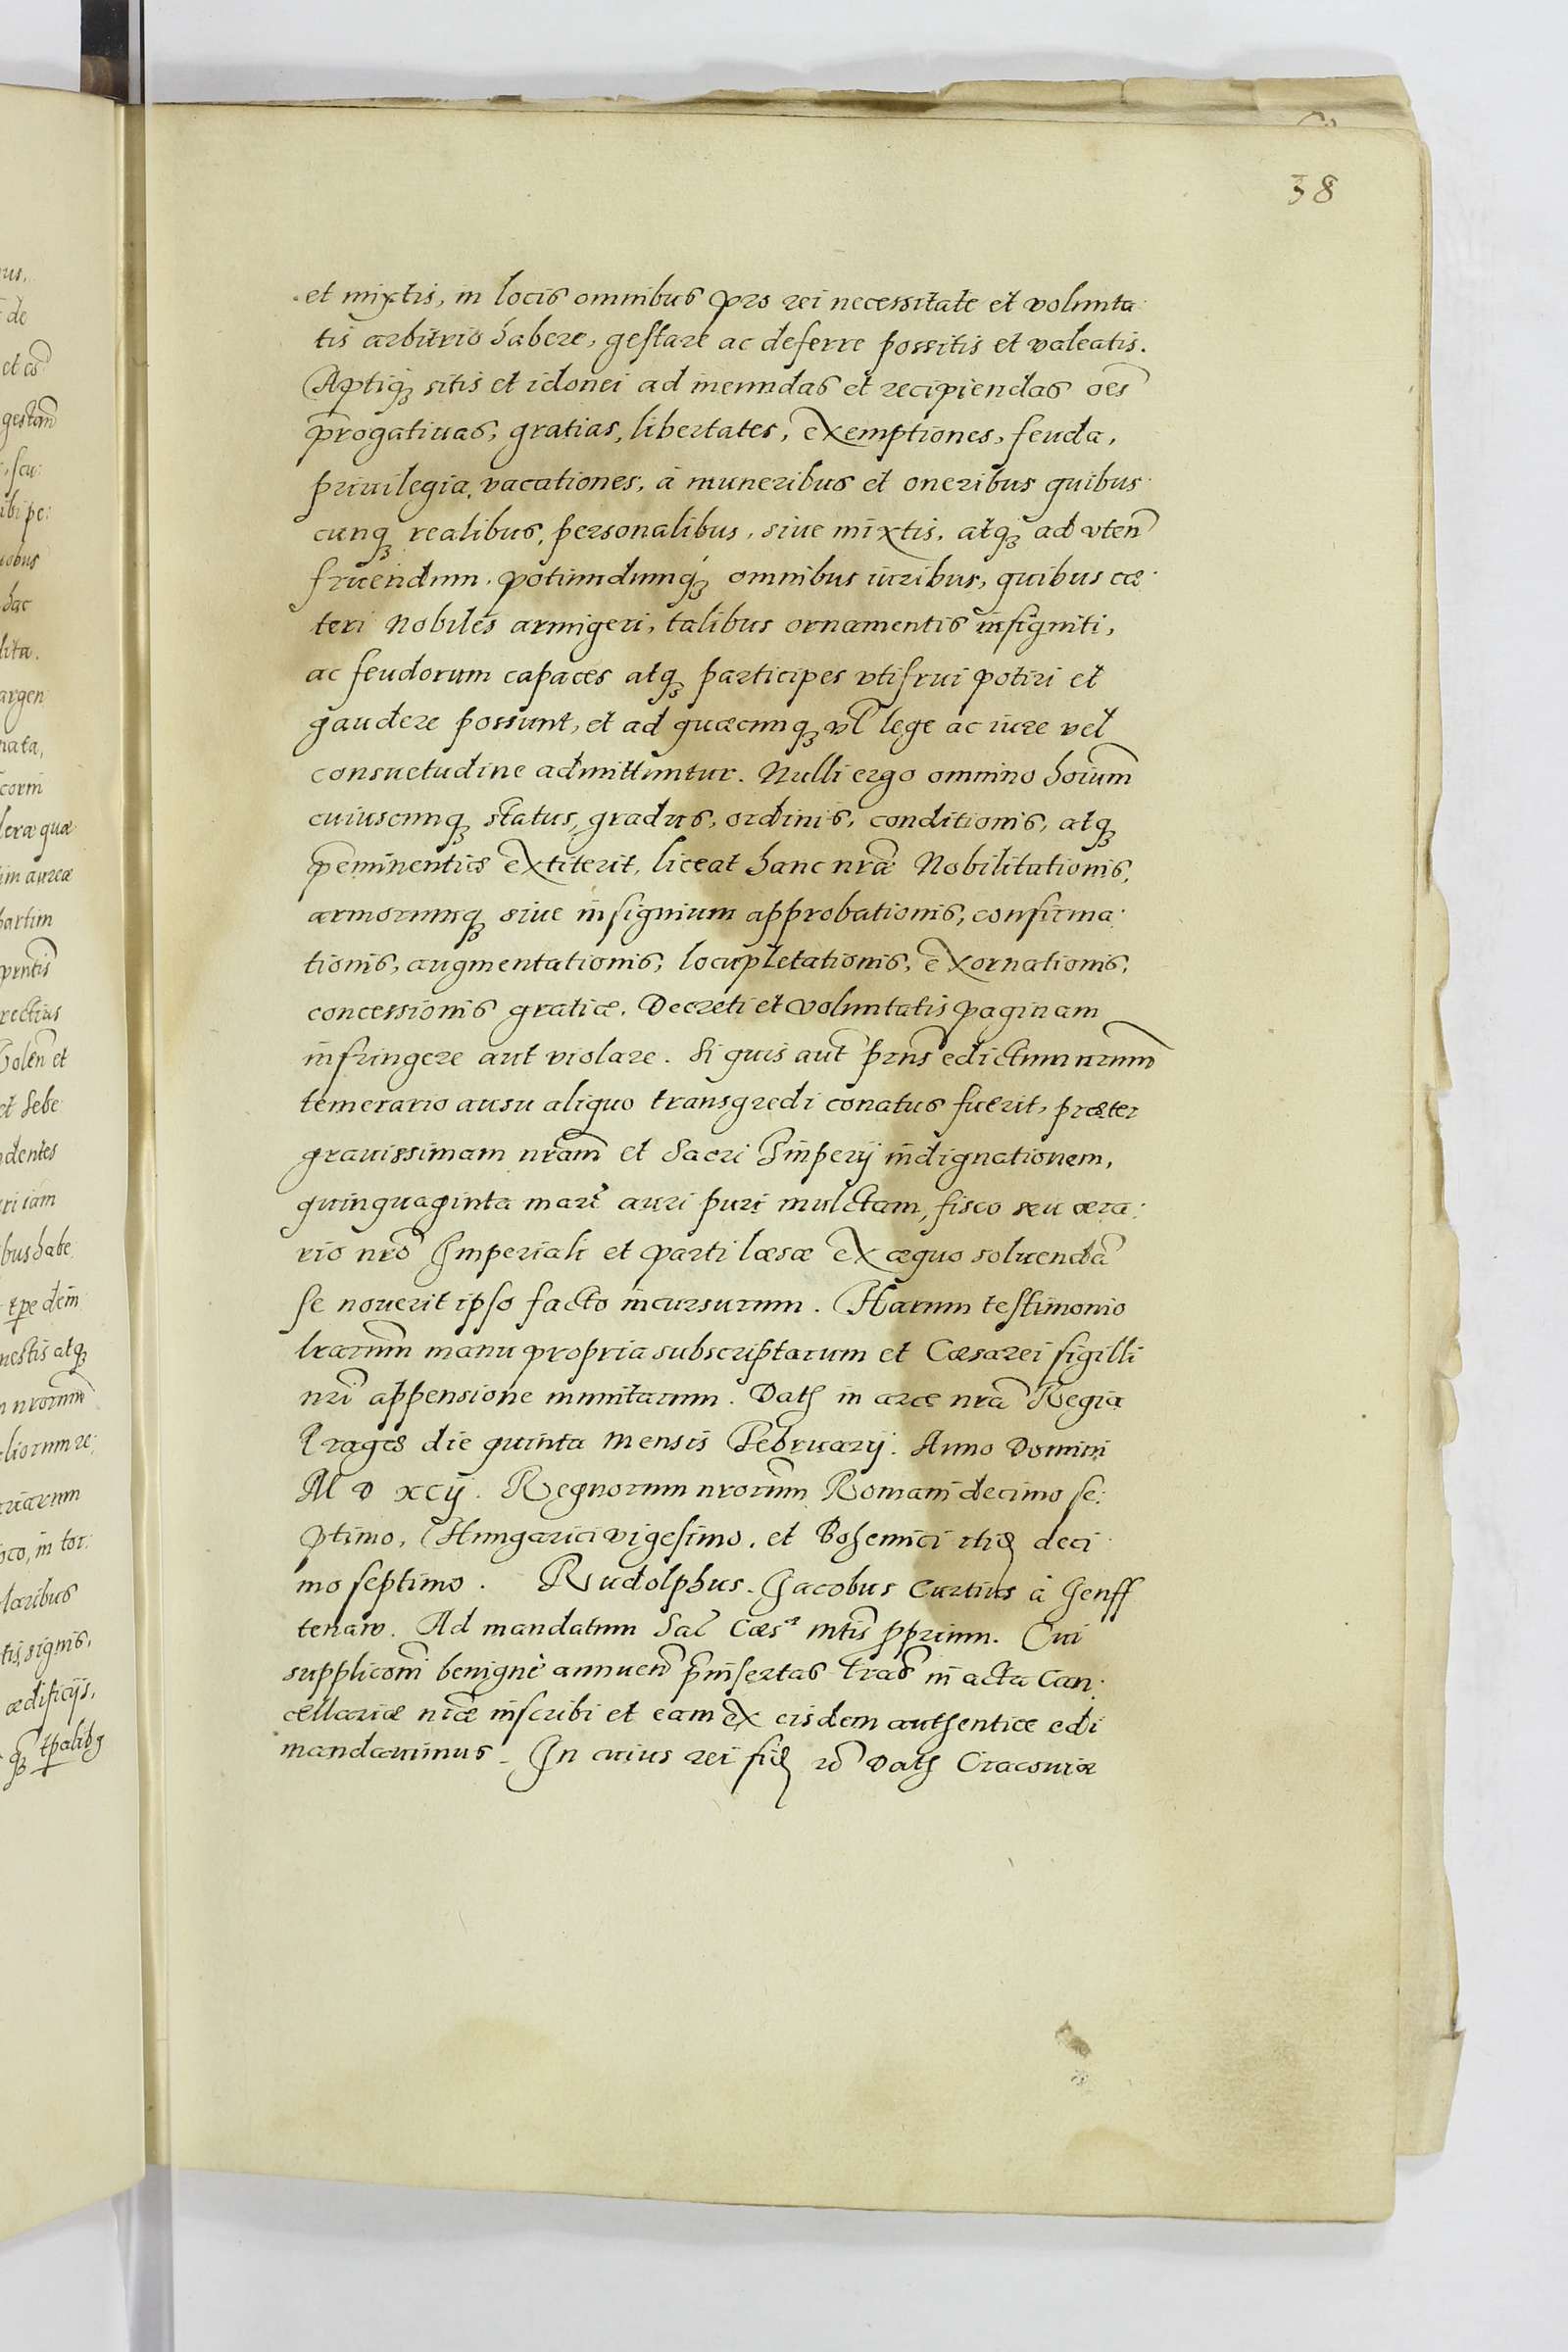 38
et mixtis, in locis omnibus pro rei necessitate et volunta:
tis arbitrio habere, gestare ac deferre possitis et valeatis.
Aptiq₃ sitis et idonei ad ineundas et recipiendas oẽs
p̄rogatiuas, gratias, libertates, exemptiones, feuda,
priuilegia, vacationes, à muneribus et oneribus quibus:
cunq₃ realibus, personalibus, siue mixtis, atq₃ ad vteñ
fruendum, potiundumq́₃ omnibus iuribus, quibus cæ:
teri Nobiles armigeri, talibus ornamentis insigniti,
ac feudorum capaces atq₃ participes vtifrui potiri et
gaudere possunt, et ad quæcunq₃ vl̃ lege ac iure vel
consuetudine admittuntur. Nulli ergo omnino hoĩum
cuiuscunq₃ status, gradus, ordinis, conditionis, atq₃
p̄eminentiæ extiterit, liceat hanc nr̃æ Nobilitationis,
armorumq₃ siue insignium approbationis, confirma:
tionis, augmentationis, locupletationis, exornationis,
concessionis gratiæ, Decreti et voluntatis paginam
infringere aut violare. Si quis aut̃ prñs edictum nr̃um
temerario ausu aliquo transgredi conatus fuerit, præter
grauissimam nr̃am et Sacri Imperij indignationem,
quinquaginta marč auri puri mulctam, fisco seu æra:
rio nr̃o Imperiali et parti læsæ ex æquo soluendã
se nouerit ipso facto incursurum. Harum testimonio
lr̃arum manu propria subscriptarum et Cæsarei sigilli
nr̃i appensione munitarum. Dat₃ in arce nr̃a Regia
Pragæ die quinta mensis Februarij. Anno Domini
M D XCij. Regnorum nr̃orum Romani decimo se:
ptimo, Hungarici vigesimo, et Bohemici itid₃ deci:
mo septimo. Rudolphus. Jacobus Curtius à Senff
tenaw. Ad mandatum Sac̃ Cæs.ᵃ mt̃is pprium. Cui
supplicoñi benignè annueñ p̄insertas lr̃as in acta Can:
cellariæ nr̃æ inscribi et eam ex eisdem authentice edi
mandauimus. In cuius rei fid₃ Dat₃ Cracouiæ